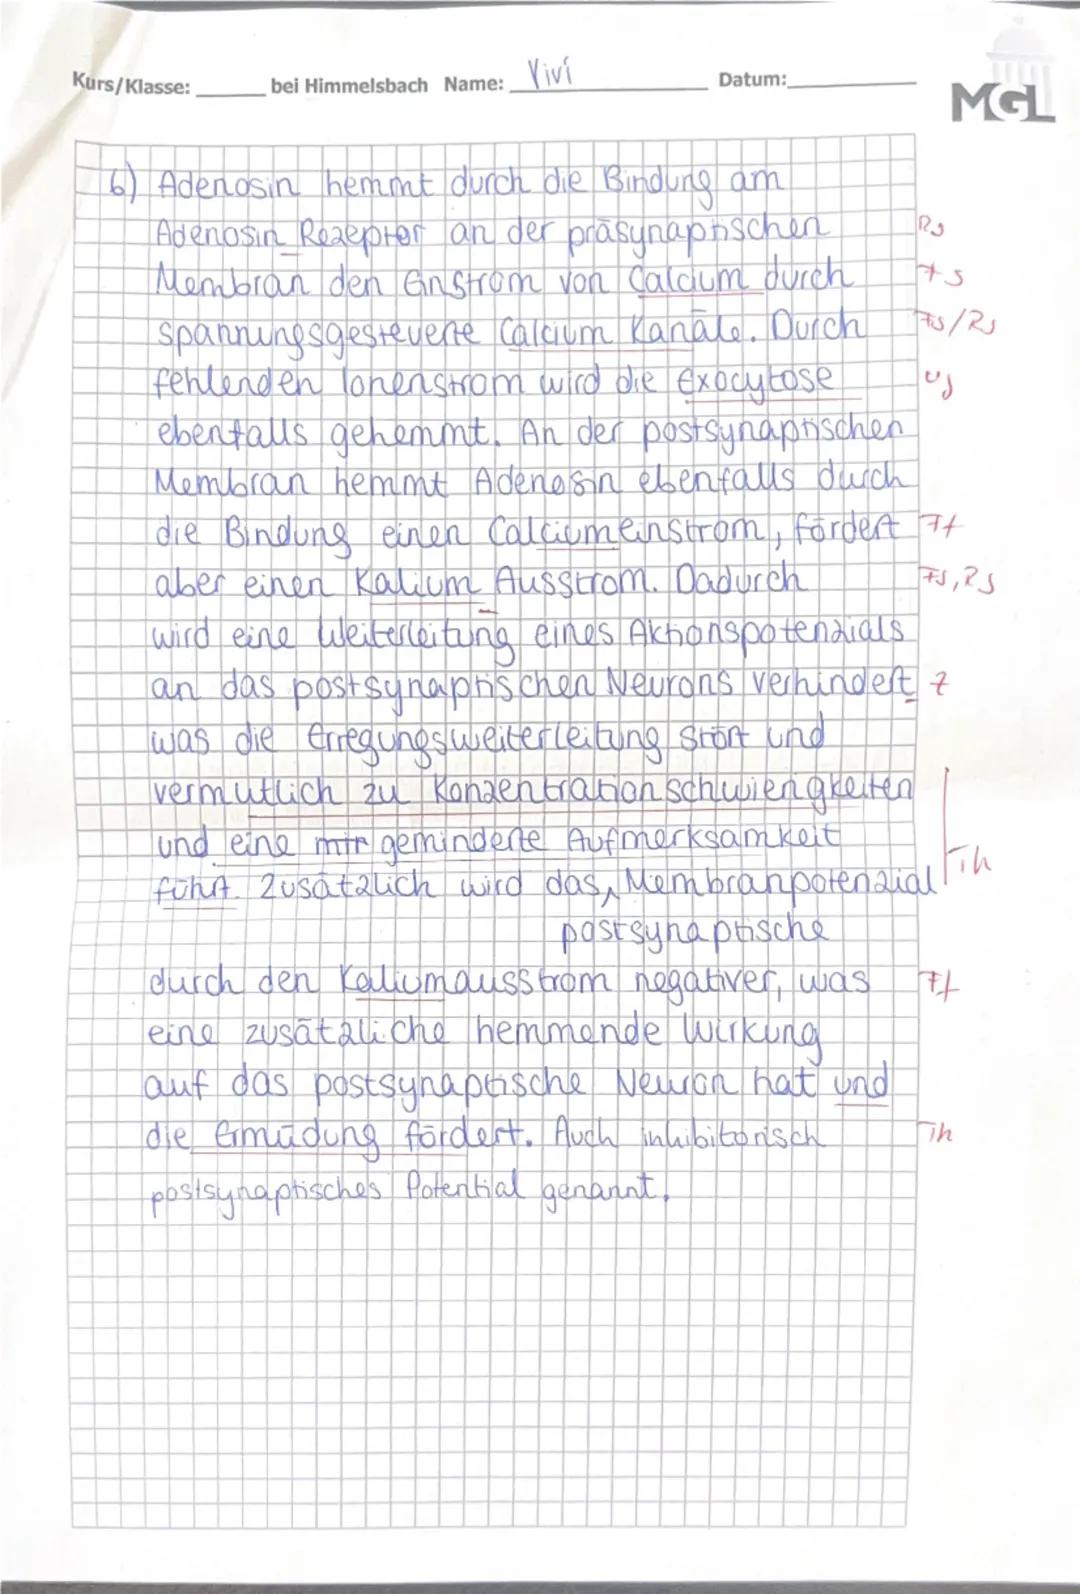 Kurs/Klasse: ______ bei Himmelsbach Name: Vivi Datum: ______
MGL
6) Adenosin hemmt durch die Bindung am
Adenosin Rezeptor an der präsynaptischen Rs
Membran den Einstrom von Calcium durch Fs
spannungsgesteuerte Calcium Kanäle. Durch Fs/Rs
fehlenden Ionenstrom wird die Exocytose
ebenfalls gehemmt. An der postsynaptischen
Membran hemmt Adenosin ebenfalls durch
die Bindung einen Calciumeinstrom, fördert Ff
aber einen Kalium Ausstrom. Dadurch Fs, Rs
wird eine Weiterleitung eines Aktionspotenzials
an das postsynaptischen Neurons verhindert Z
was die Erregungsweiterleitung stört und
vermutlich zu Konzentrationschwierigkeiten
und eine geminderte Aufmerksamkeit
führt. Zusätzlich wird das Membranpotenzial Th
postsynaptische
durch den Kaliumausstrom negativer, was Ff
eine zusätzliche hemmende Wirkung
auf das postsynaptische Neuron hat und
die Ermüdung fördert. Auch inhibitorisch Th
postsynaptisches Potential genannt.